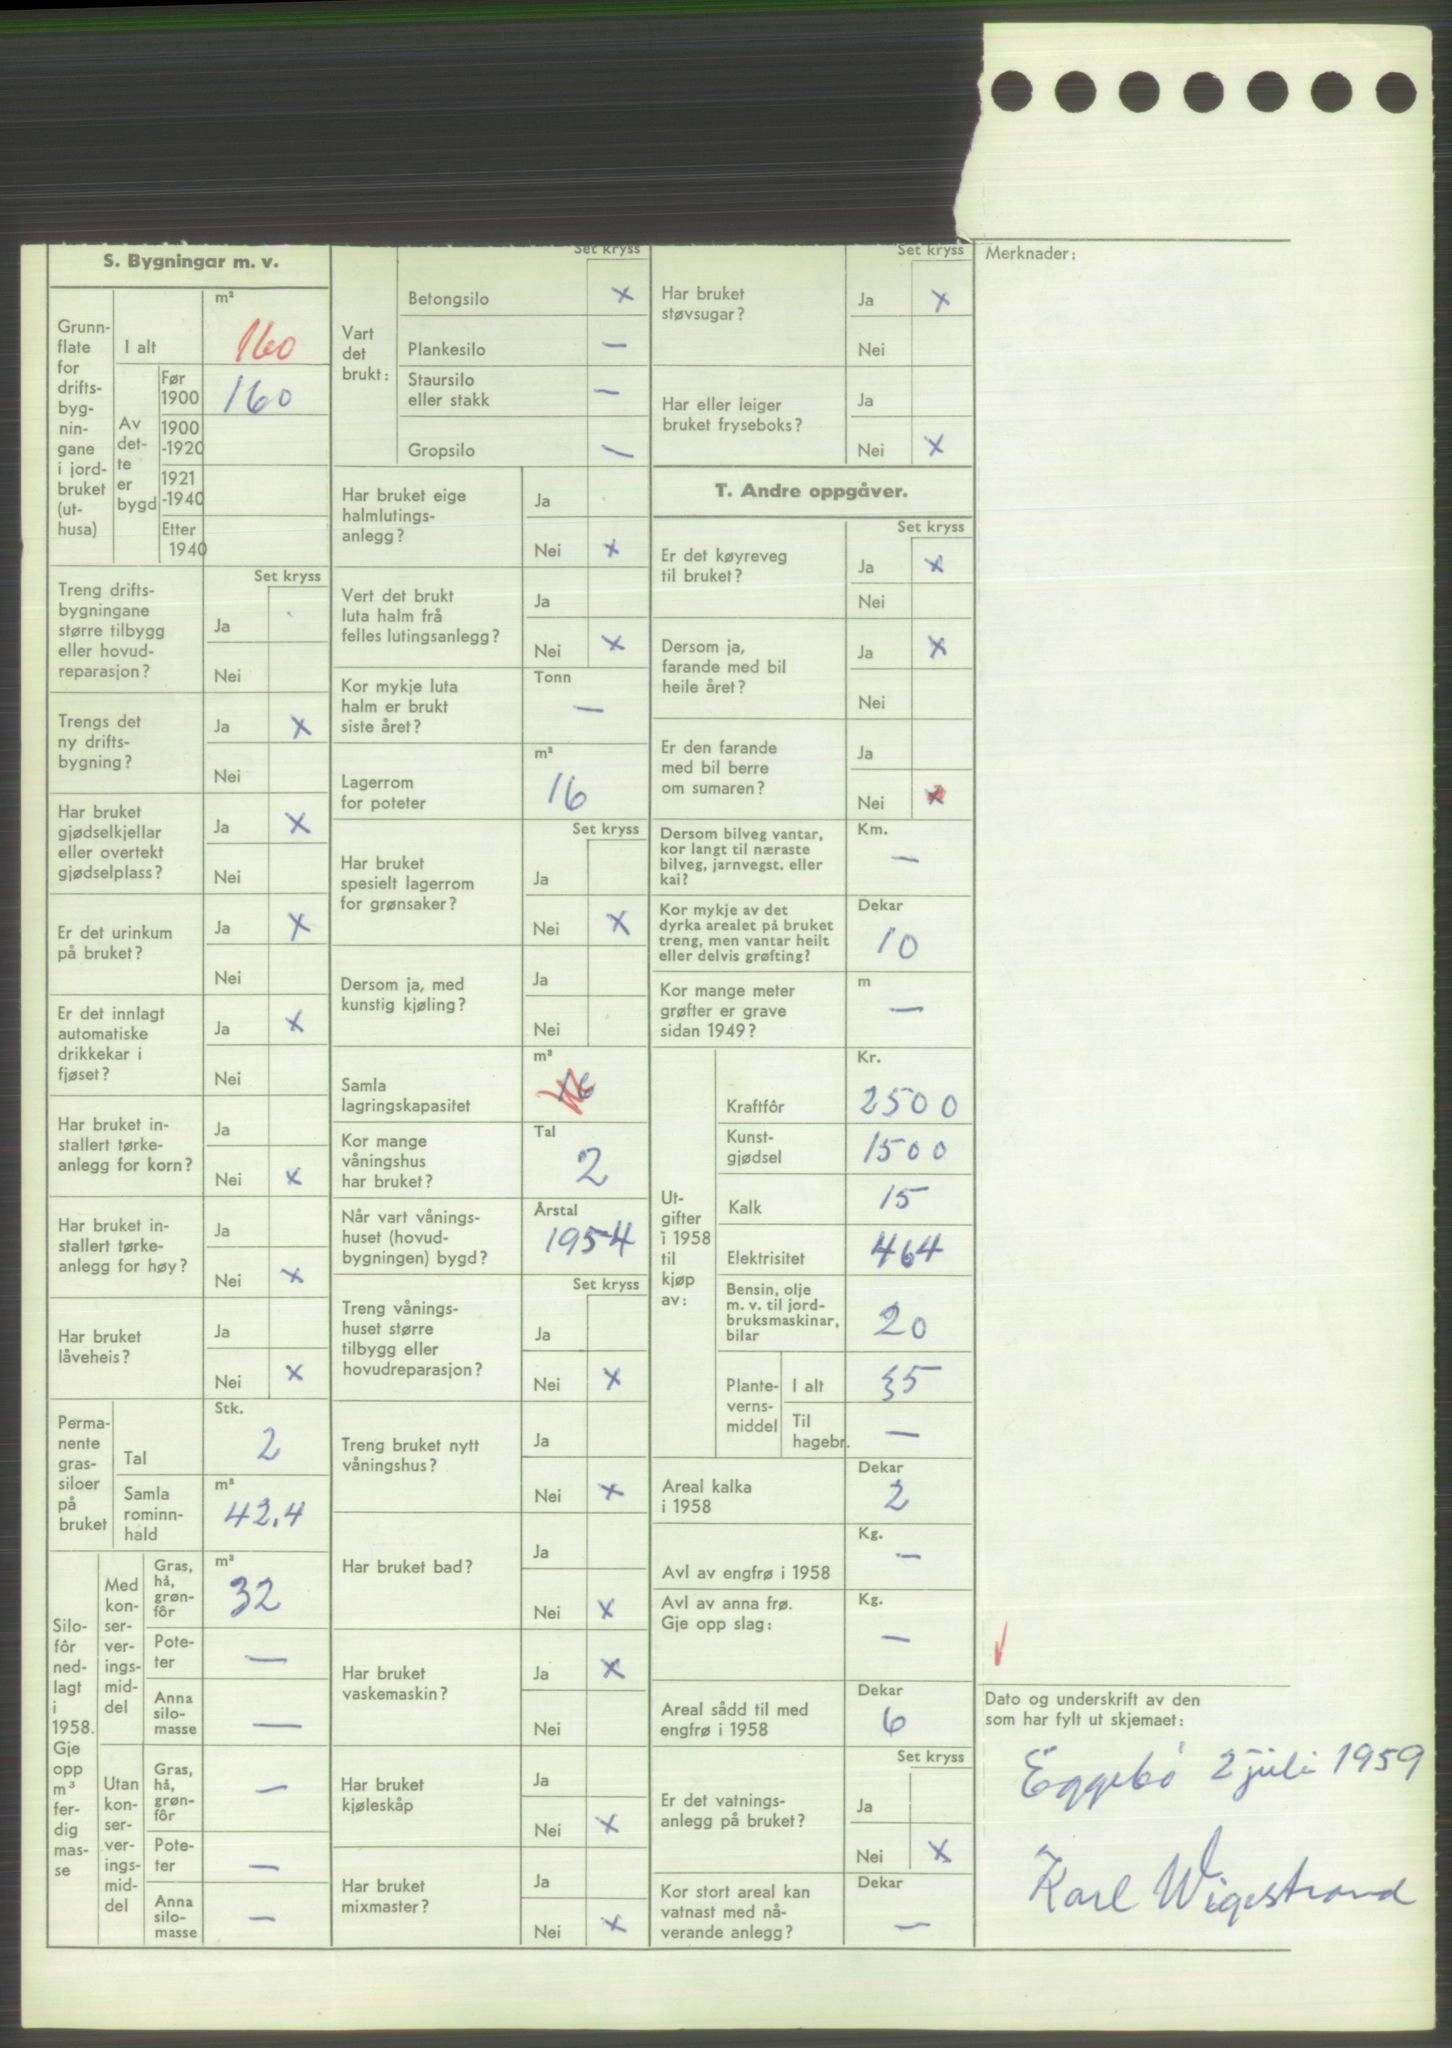 S. Bygningar m. v.
Grunn-
flate
for
drifts-
byg-
nin-
gane
i jord-
bruket
(ut-
husa)
m²
I alt
160
Av
det-
te
er
bygd
Før
1900
160
1900
-1920
1921
-1940
Etter
1940
Set kryss
Treng drifts-
bygningane
større tilbygg
eller hovud-
reparasjon?
Ja
Nei
Trengs det
ny drifts-
bygning?
Ja x
Nei
Har bruket
gjødselkjellar
eller overtekt
gjødselplass?
Ja x
Nei
Er det urinkum
på bruket?
Ja x
Nei
Er det innlagt
automatiske
drikkekar i
fjøset?
Ja x
Nei
Har bruket in-
stallert tørke-
anlegg for korn?
Ja
Nei x
Har bruket in-
stallert tørke-
anlegg for høy?
Ja
Nei x
Har bruket
låveheis?
Ja
Nei x
Perma-
nente
gras-
siloer
på
bruket
Stk.
Tal
2
Samla
rominn-
hald
m³
42.4
Silo-
fôr
ned-
lagt
i
1958.
Gje
opp
m³
fer-
dig
mas-
se
Med
kon-
ser-
ver-
ings-
mid-
del
Gras,
hå,
grøn-
fôr
m³
32
Pote-
ter
—
Anna
silo-
masse
—
Utan
kon-
ser-
ver-
ings-
mid-
del
Gras,
hå,
grøn-
fôr
—
Pote-
ter
—
Anna
silo-
masse
—
Set kryss
Vart
det
brukt:
Betongsilo x
Plankesilo —
Staursilo
eller stakk —
Gropsilo —
Har bruket eige
halmlutings-
anlegg?
Ja
Nei x
Vert det brukt
luta halm frå
felles lutingsanlegg?
Ja
Nei x
Kor mykje luta
halm er brukt
siste året?
Tonn
—
Lagerrom
for poteter
m³
16
Set kryss
Har bruket
spesielt lagerrom
for grønsaker?
Ja
Nei x
Dersom ja, med
kunstig kjøling?
Ja
Nei
Samla
lagringskapasitet
m³
16
Kor mange
våningshus
har bruket?
Tal
2
Når vart vånings-
huset (hovud-
bygningen) bygd?
Årstal
1954
Set kryss
Treng vånings-
huset større
tilbygg eller
hovudreparasjon?
Ja
Nei x
Treng bruket nytt
våningshus?
Ja
Nei x
Har bruket bad?
Ja
Nei x
Har bruket
vaskemaskin?
Ja x
Nei
Har bruket
kjøleskåp
Ja
Nei x
Har bruket
mixmaster?
Ja
Nei x
Set kryss
Har bruket
støvsugar?
Ja x
Nei
Har eller leiger
bruket fryseboks?
Ja
Nei x
T. Andre oppgåver.
Set kryss
Er det køyreveg
til bruket?
Ja x
Nei
Dersom ja,
farande med bil
heile året?
Ja x
Nei
Er den farande
med bil berre
om sumaren?
Ja
Nei x
Dersom bilveg vantar,
kor langt til næraste
bilveg, jarnvegst. eller
kai?
Km.
—
Kor mykje av det
dyrka arealet på bruket
treng, men vantar heilt
eller delvis grøfting?
Dekar
10
Kor mange meter
grøfter er grave
sidan 1949?
m
—
Ut-
gifter
i 1958
til
kjøp
av:
Kr.
Kraftfôr
2500
Kunst-
gjødsel
1500
Kalk
15
Elektrisitet
464
Bensin, olje
m. v. til jord-
bruksmaskinar,
bilar
20
Plante-
verns-
middel
I alt
35
Til
hagebr.
—
Areal kalka
i 1958
Dekar
2
Avl av engfrø i 1958
Kg.
—
Avl av anna frø.
Gje opp slag:
Kg.
—
Areal sådd til med
engfrø i 1958
Dekar
6
Set kryss
Er det vatnings-
anlegg på bruket?
Ja
Nei x
Kor stort areal kan
vatnast med nå-
verande anlegg?
Dekar
—
Merknader:
Dato og underskrift av den
som har fylt ut skjemaet:
Eggebø 2 juli 1959
Karl Wigestrand